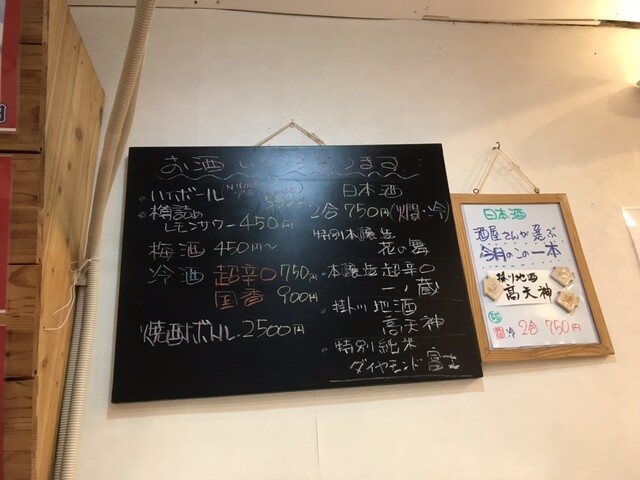 お酒
ハイボール
樽詰め
レモンサワー 450円
梅酒 450円〜
冷酒 超辛口 750円
国香 900円
焼酎ボトル 2500円
日本酒
2合 750円(燗・冷)
特別本醸造
花の舞
本醸造 超辛口
一ノ蔵
掛川地酒
高天神
特別純米
ダイヤモンド富士
日本酒
酒屋さんが選ぶ
今月のこの一本
掛川地酒
高天神
冷 2合 750円